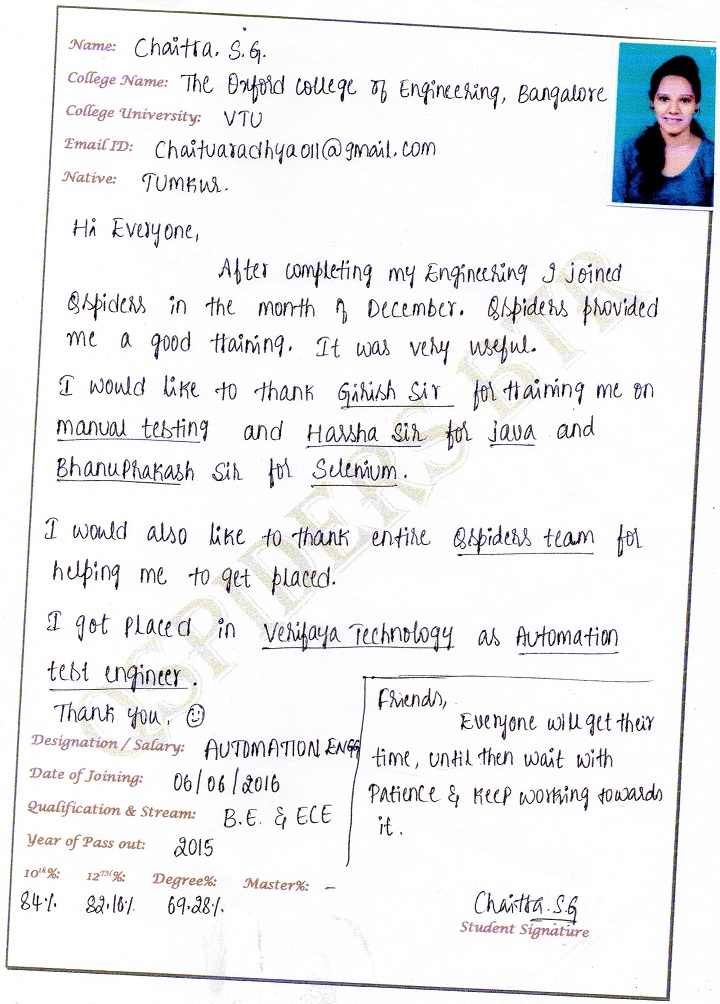 Name: Chaitra. S.G.
College Name: The Oxford college of Engineering, Bangalore
College University: VTU
Email ID: Chaituaradhya011@gmail.com
Native: TUMKUR.
Hi Everyone,
After completing my Engineering I joined
Qspiders in the month of December. Qspiders provided
me a good training. It was very useful.
I would like to thank Girish Sir for training me on
manual testing and Harsha Sir for java and
BhanuPrakash Sir for Selenium.
I would also like to thank entire Qspiders team for
helping me to get placed.
I got placed in Verifaya Technology as Automation
test engineer.
Thank you. ☺
Friends,
Everyone will get their
time, until then wait with
Patience & keep working towards
it.
Designation / Salary: AUTOMATION ENGG
Date of Joining: 06/06/2016
Qualification & Stream: B.E. & ECE
Year of Pass out: 2015
10th%: 12TH%: Degree%: Master%: –
84% 82.16% 69.28%
Chaitra.S.G
Student Signature
QSPIDERS BTR